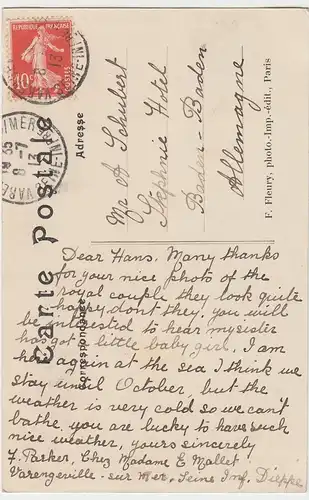 RÉPUBLIQUE FRANÇAISE
10c POSTES
Carte Postale
Correspondance
Adresse
F. Fleury, photo.-Imp.-édit., Paris
Mr A Schubert
Stéphnie Hotel
Baden-Baden
Allemagne
Dear Hans. Many thanks
for your nice photo of the
royal couple they look quite
happy dont they. you will
be interestid to hear my sister
has got a little baby girl. I am
here again at the sea I think we
stay until October, but the
weather is very cold so we can't
bathe. you are lucky to have such
nice weather, yours sincerely
F. Parker, Chez Madame E Mallet
Varengeville-sur Mer, Seine Inf. Dieppe